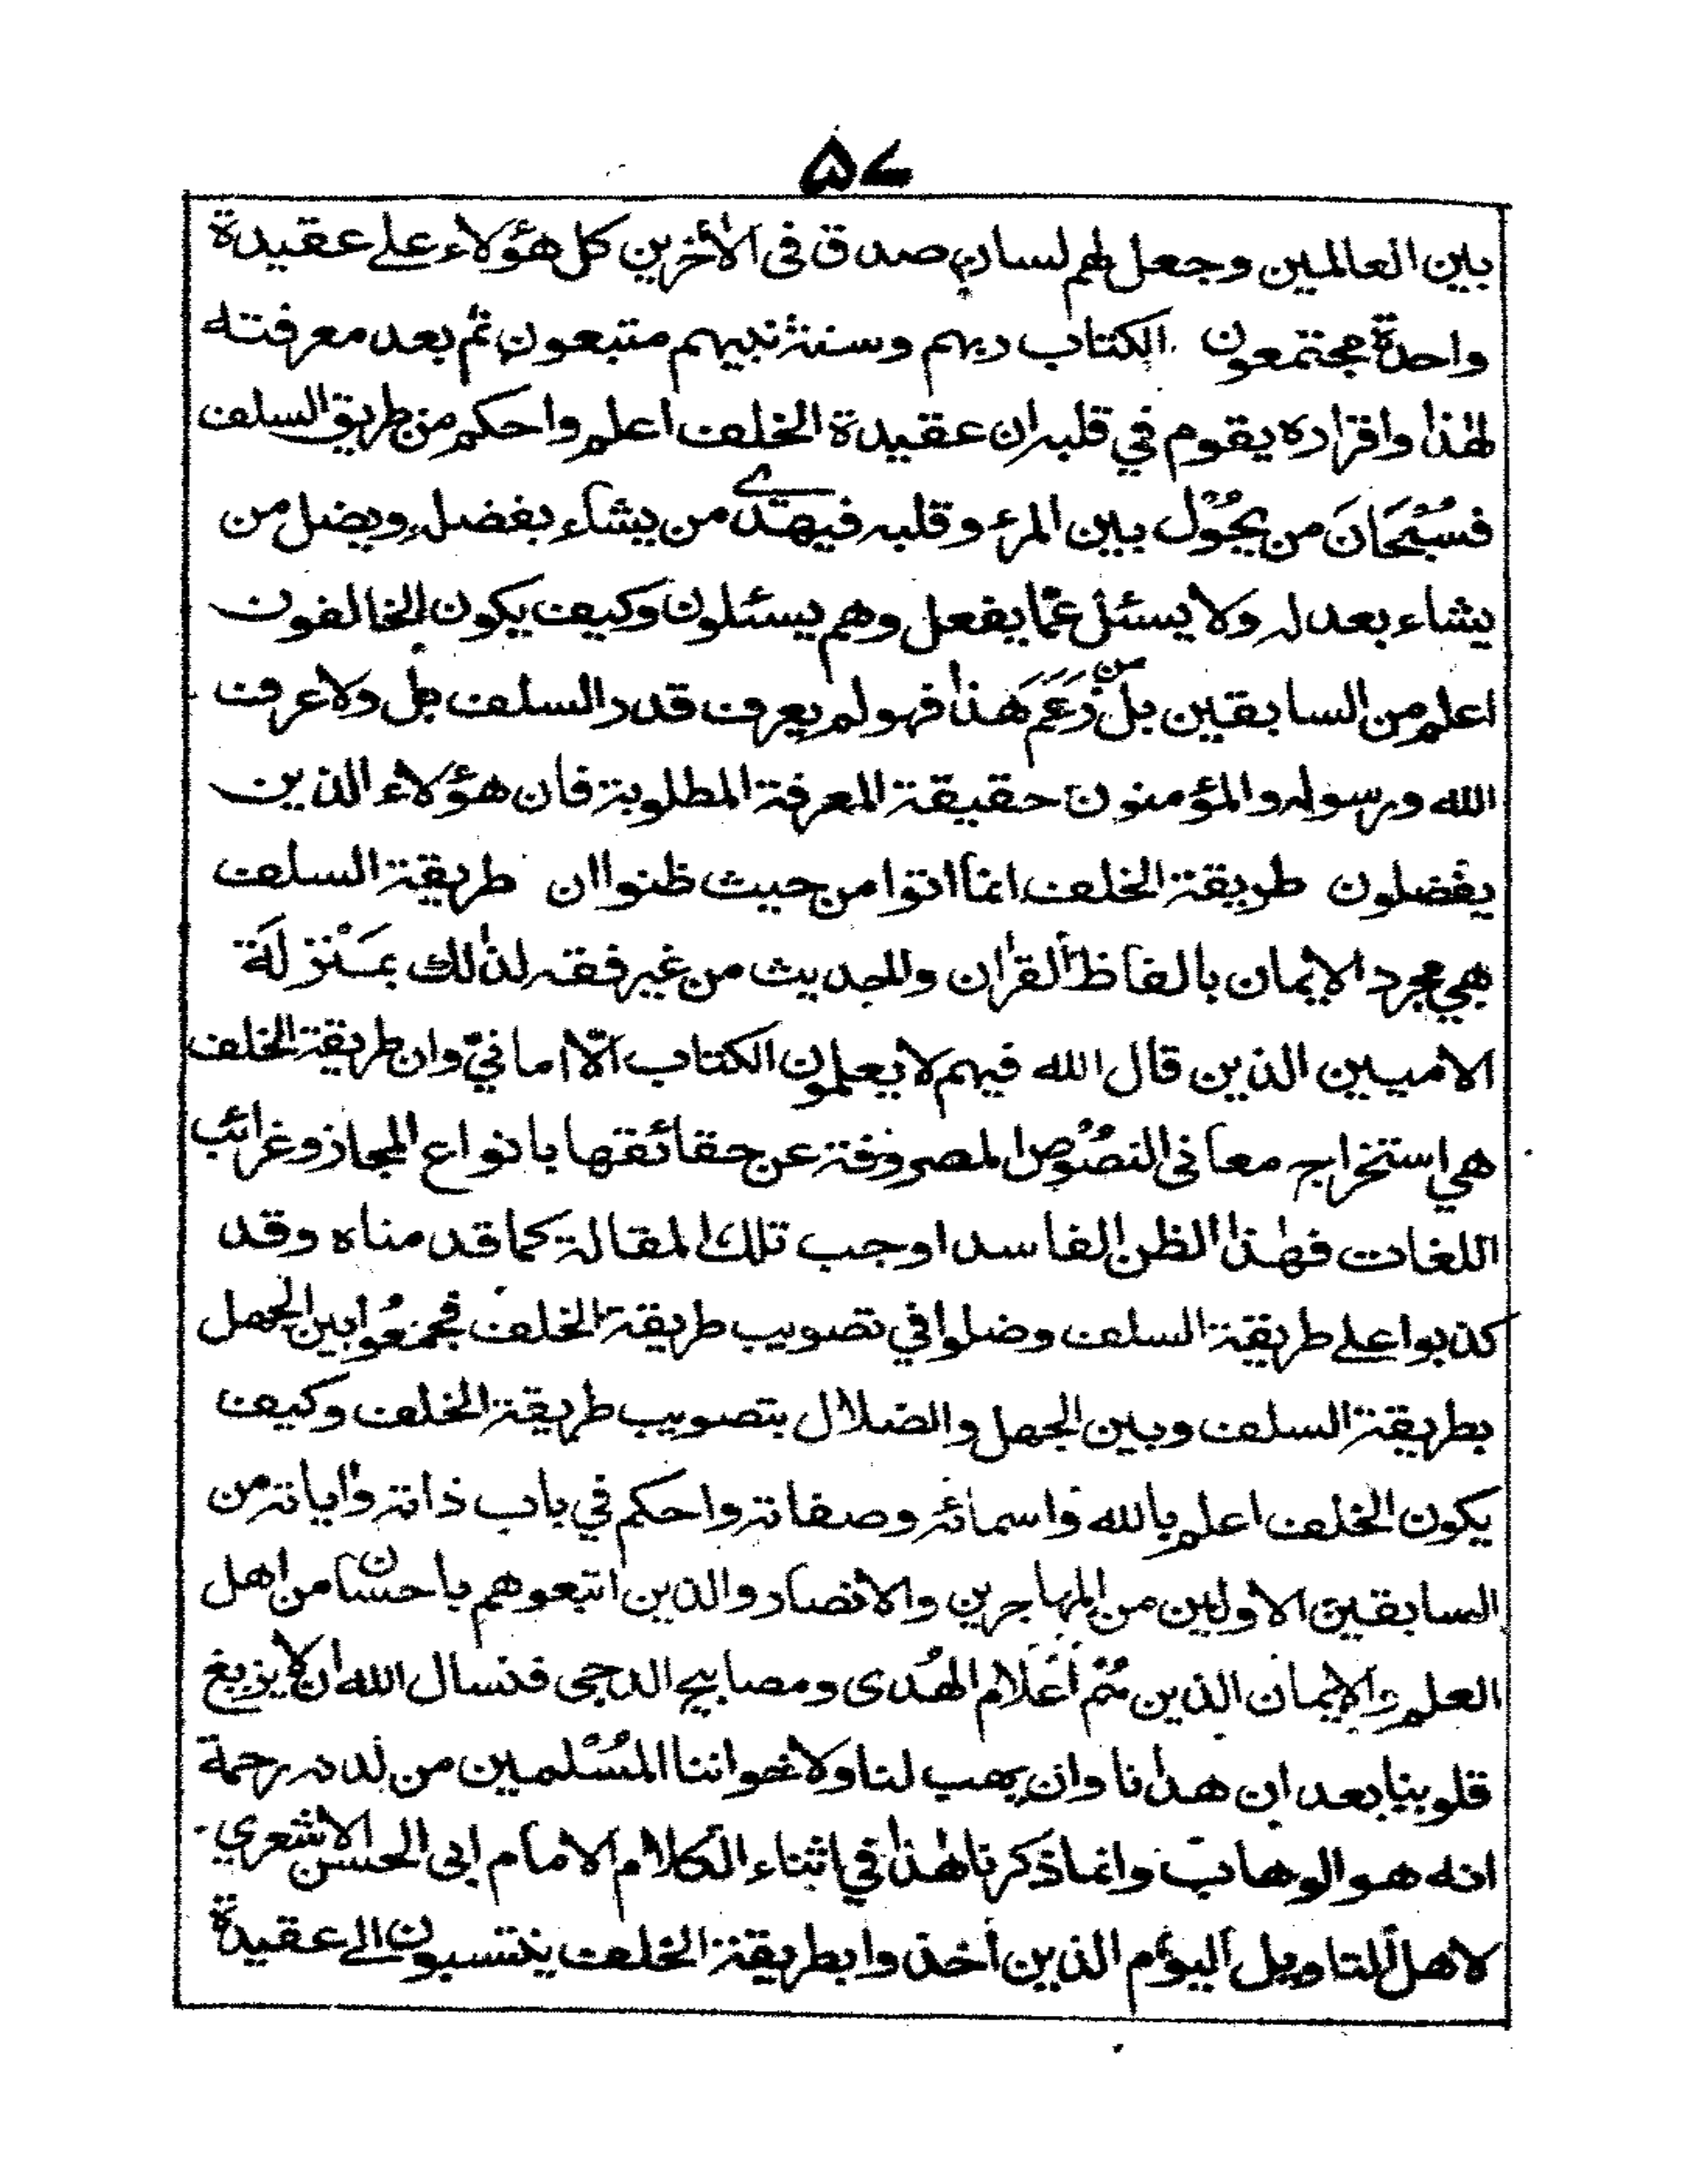 ۵۷
بين العالمين وجعل لهم لسان صدق فى الأخرين كل هؤلاء على عقيدة
واحدة مجتمعون الكتاب ربهم وسنة نبيهم متبعون ثم بعد معرفته
لهذا واقراره يقوم في قلبه ان عقيدة الخلف اعلم واحكم من طريق السلف
فسُبْحَانَ من يحُوْل بين المرء وقلبه فيهتدے من يشاء بفضله ويضل من
يشاء بعدله ولا يسئل عمّا يفعل وهم يسئلون وكيف يكون الخالفون
اعلم من السابقين بل من زَعَمَ هذا فهو لم يعرف قدر السلف بل ولا عرف
الله ورسوله والمؤمنون حقيقة المعرفة المطلوبة فان هؤلاء الذين
يفضلون طريقة الخلف انما اتوا من حيث ظنوا ان طريقة السلف
هي مجرد الايمان بالفاظ القرأن والحديث من غير فقه لذلك بمَنْزلَة
الاميين الذين قال الله فيهم لا يعلمون الكتاب الّا امانيّ وان طريقة الخلف
هي استخراج معانى النصُوْص المصروفة عن حقائقها بانواع المجاز وغرائب
اللغات فهٰذا الظن الفاسد اوجب تلك المقالة كما قدمناه وقد
كذبوا على طريقة السلف وضلوا في تصويب طريقة الخلف فجمعُوا بين الجهل
بطريقة السلف وبين الجهل والضلال بتصويب طريقة الخلف وكيف
يكون الخلف اعلم بالله واسمائه وصفاته واحكم في باب ذاته واياته من
السابقين الاولين من المهاجرين والانصار والذين اتبعوهم باحسان من اهل
العلم والايمان الذين هُمْ أَعْلام الهُدى ومصابيح الدجى فنسال الله ان لا يزيغ
قلوبنا بعد ان هدٰنا وان يهب لنا ولاخواننا المُسْلمين من لدنه رحمة
انه هو الوهاب وانما ذكرنا هٰذا في اثناء الكلام الامام ابى الحسن الاشعري
لاهل للتاويل اليوم الذين أخذوا بطريقة الخلف ينتسبون الى عقيدة